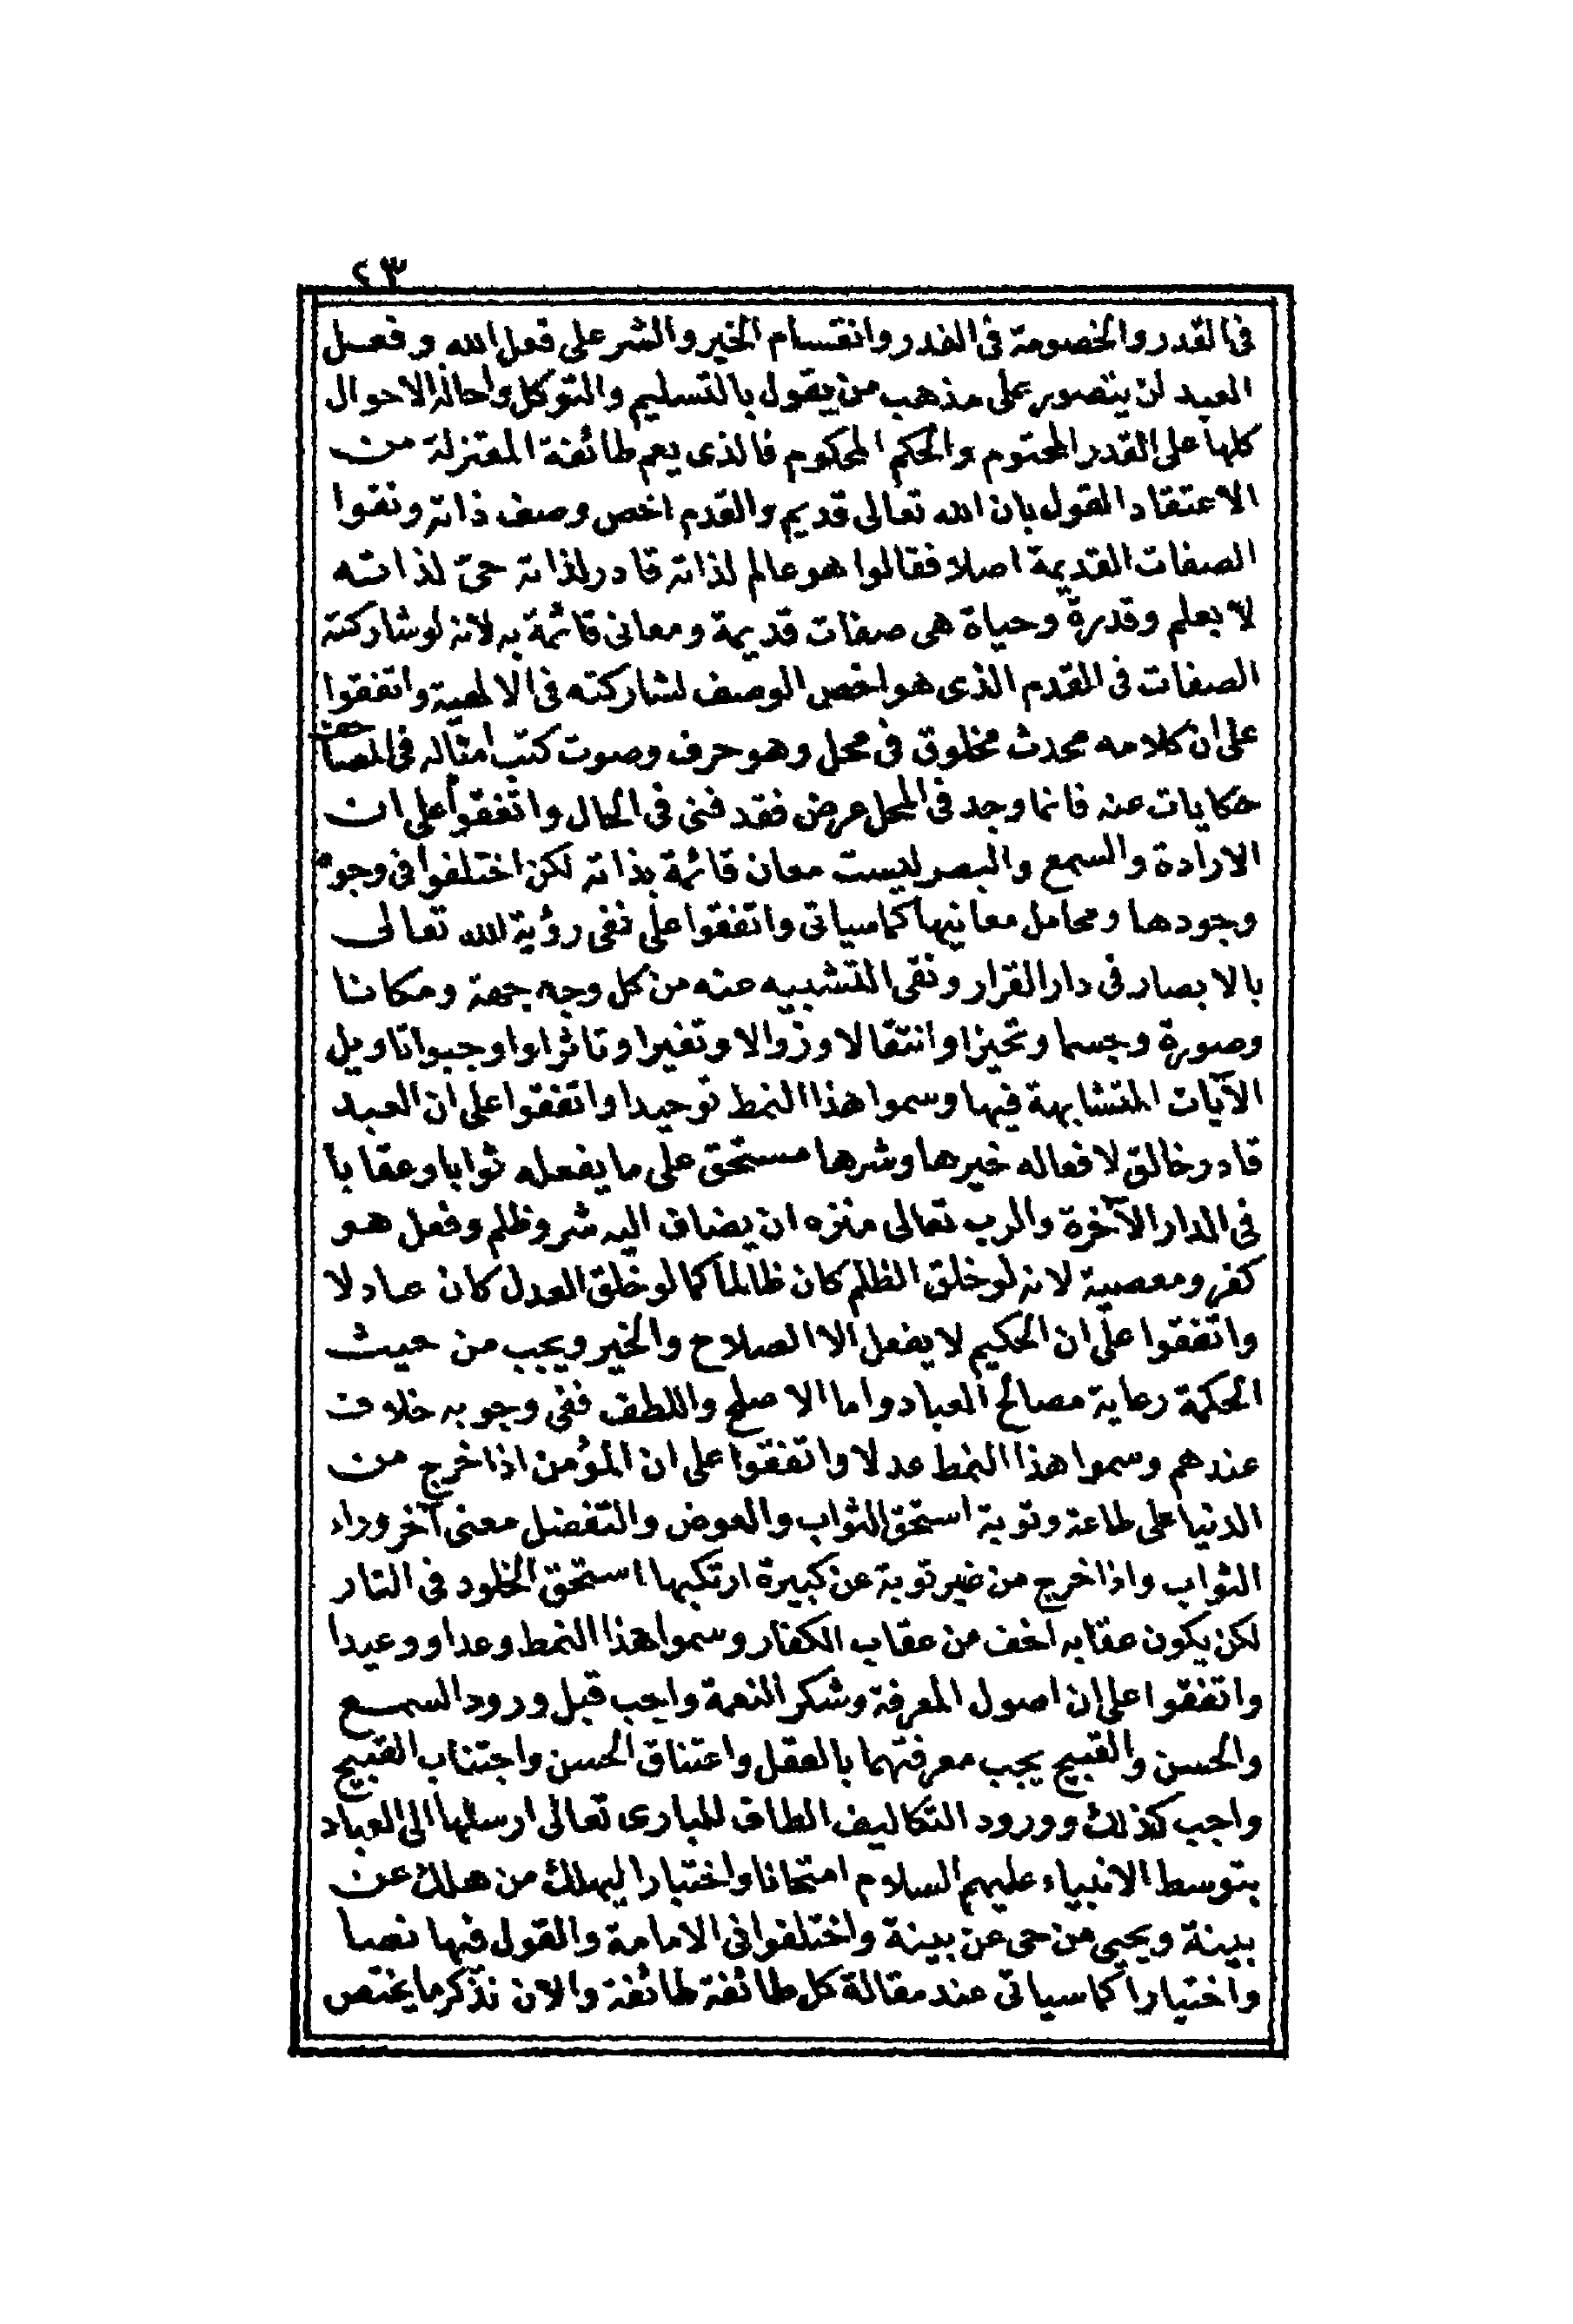 ٢٣
فى القدر والخصومة فى القدر وانقسام الخير والشر على فعل الله وفعل
العبد لن يتصور على مذهب من يقول بالتسليم والتوكل واحالة الاحوال
كلها على القدر المحتوم والحكم المحكوم فالذى يعم طائفة المعتزلة من
الاعتقاد القول بان الله تعالى قديم والقدم اخص وصف ذاته ونفوا
الصفات القديمة اصلا فقالوا هو عالم لذاته قادر لذاته حىّ لذاته
لا بعلم وقدرة وحياة هى صفات قديمة ومعانى قائمة به لانه لو شاركته
الصفات فى القدم الذى هو اخص الوصف لشاركته فى الالهية واتفقوا
على ان كلامه محدث مخلوق فى محل وهو حرف وصوت كتب امثاله فى المصاحف
حكايات عنه فانما وجد فى المحل عرض فقد فنى فى الحال واتفقوا على ان
الارادة والسمع والبصر ليست معان قائمة بذاته لكن اختلفوا فى وجوه
وجودها ومحامل معانيها كما سياتى واتفقوا على نفى رؤية الله تعالى
بالابصار فى دار القرار ونفى التشبيه عنه من كل وجه جهة ومكانا
وصورة وجسما وتحيزا وانتقالا وزوالا وتغيرا وتاثرا واوجبوا تاويل
الآيات المتشابهة فيها وسموا هذا النمط توحيدا واتفقوا على ان العبد
قادر خالق لافعاله خيرها وشرها مستحق على ما يفعله ثوابا وعقابا
فى الدار الآخرة والرب تعالى منزه ان يضاف اليه شر وظلم وفعل هو
كفر ومعصية لانه لو خلق الظلم كان ظالما كما لو خلق العدل كان عادلا
واتفقوا على ان الحكيم لا يفعل الا الصلاح والخير ويجب من حيث
الحكمة رعاية مصالح العباد واما الاصلح واللطف ففى وجوبه خلاف
عندهم وسموا هذا النمط عدلا واتفقوا على ان المؤمن اذا خرج من
الدنيا على طاعة وتوبة استحق الثواب والعوض والتفضل معنى آخر وراء
الثواب واذا خرج من غير توبة عن كبيرة ارتكبها استحق الخلود فى النار
لكن يكون عقابه اخف من عقاب الكفار وسموا هذا النمط وعدا ووعيدا
واتفقوا على ان اصول المعرفة وشكر النعمة واجب قبل ورود السمع
والحسن والقبيح يجب معرفتهما بالعقل واعتناق الحسن واجتناب القبيح
واجب كذلك وورود التكاليف الطاف للبارى تعالى ارسلها الى العباد
بتوسط الانبياء عليهم السلام امتحانا واختبارا ليهلك من هلك عن
بينة ويحيى من حى عن بينة واختلفوا فى الامامة والقول فيها نصا
واختيارا كما سياتى عند مقالة كل طائفة طائفة والان نذكر ما يختص